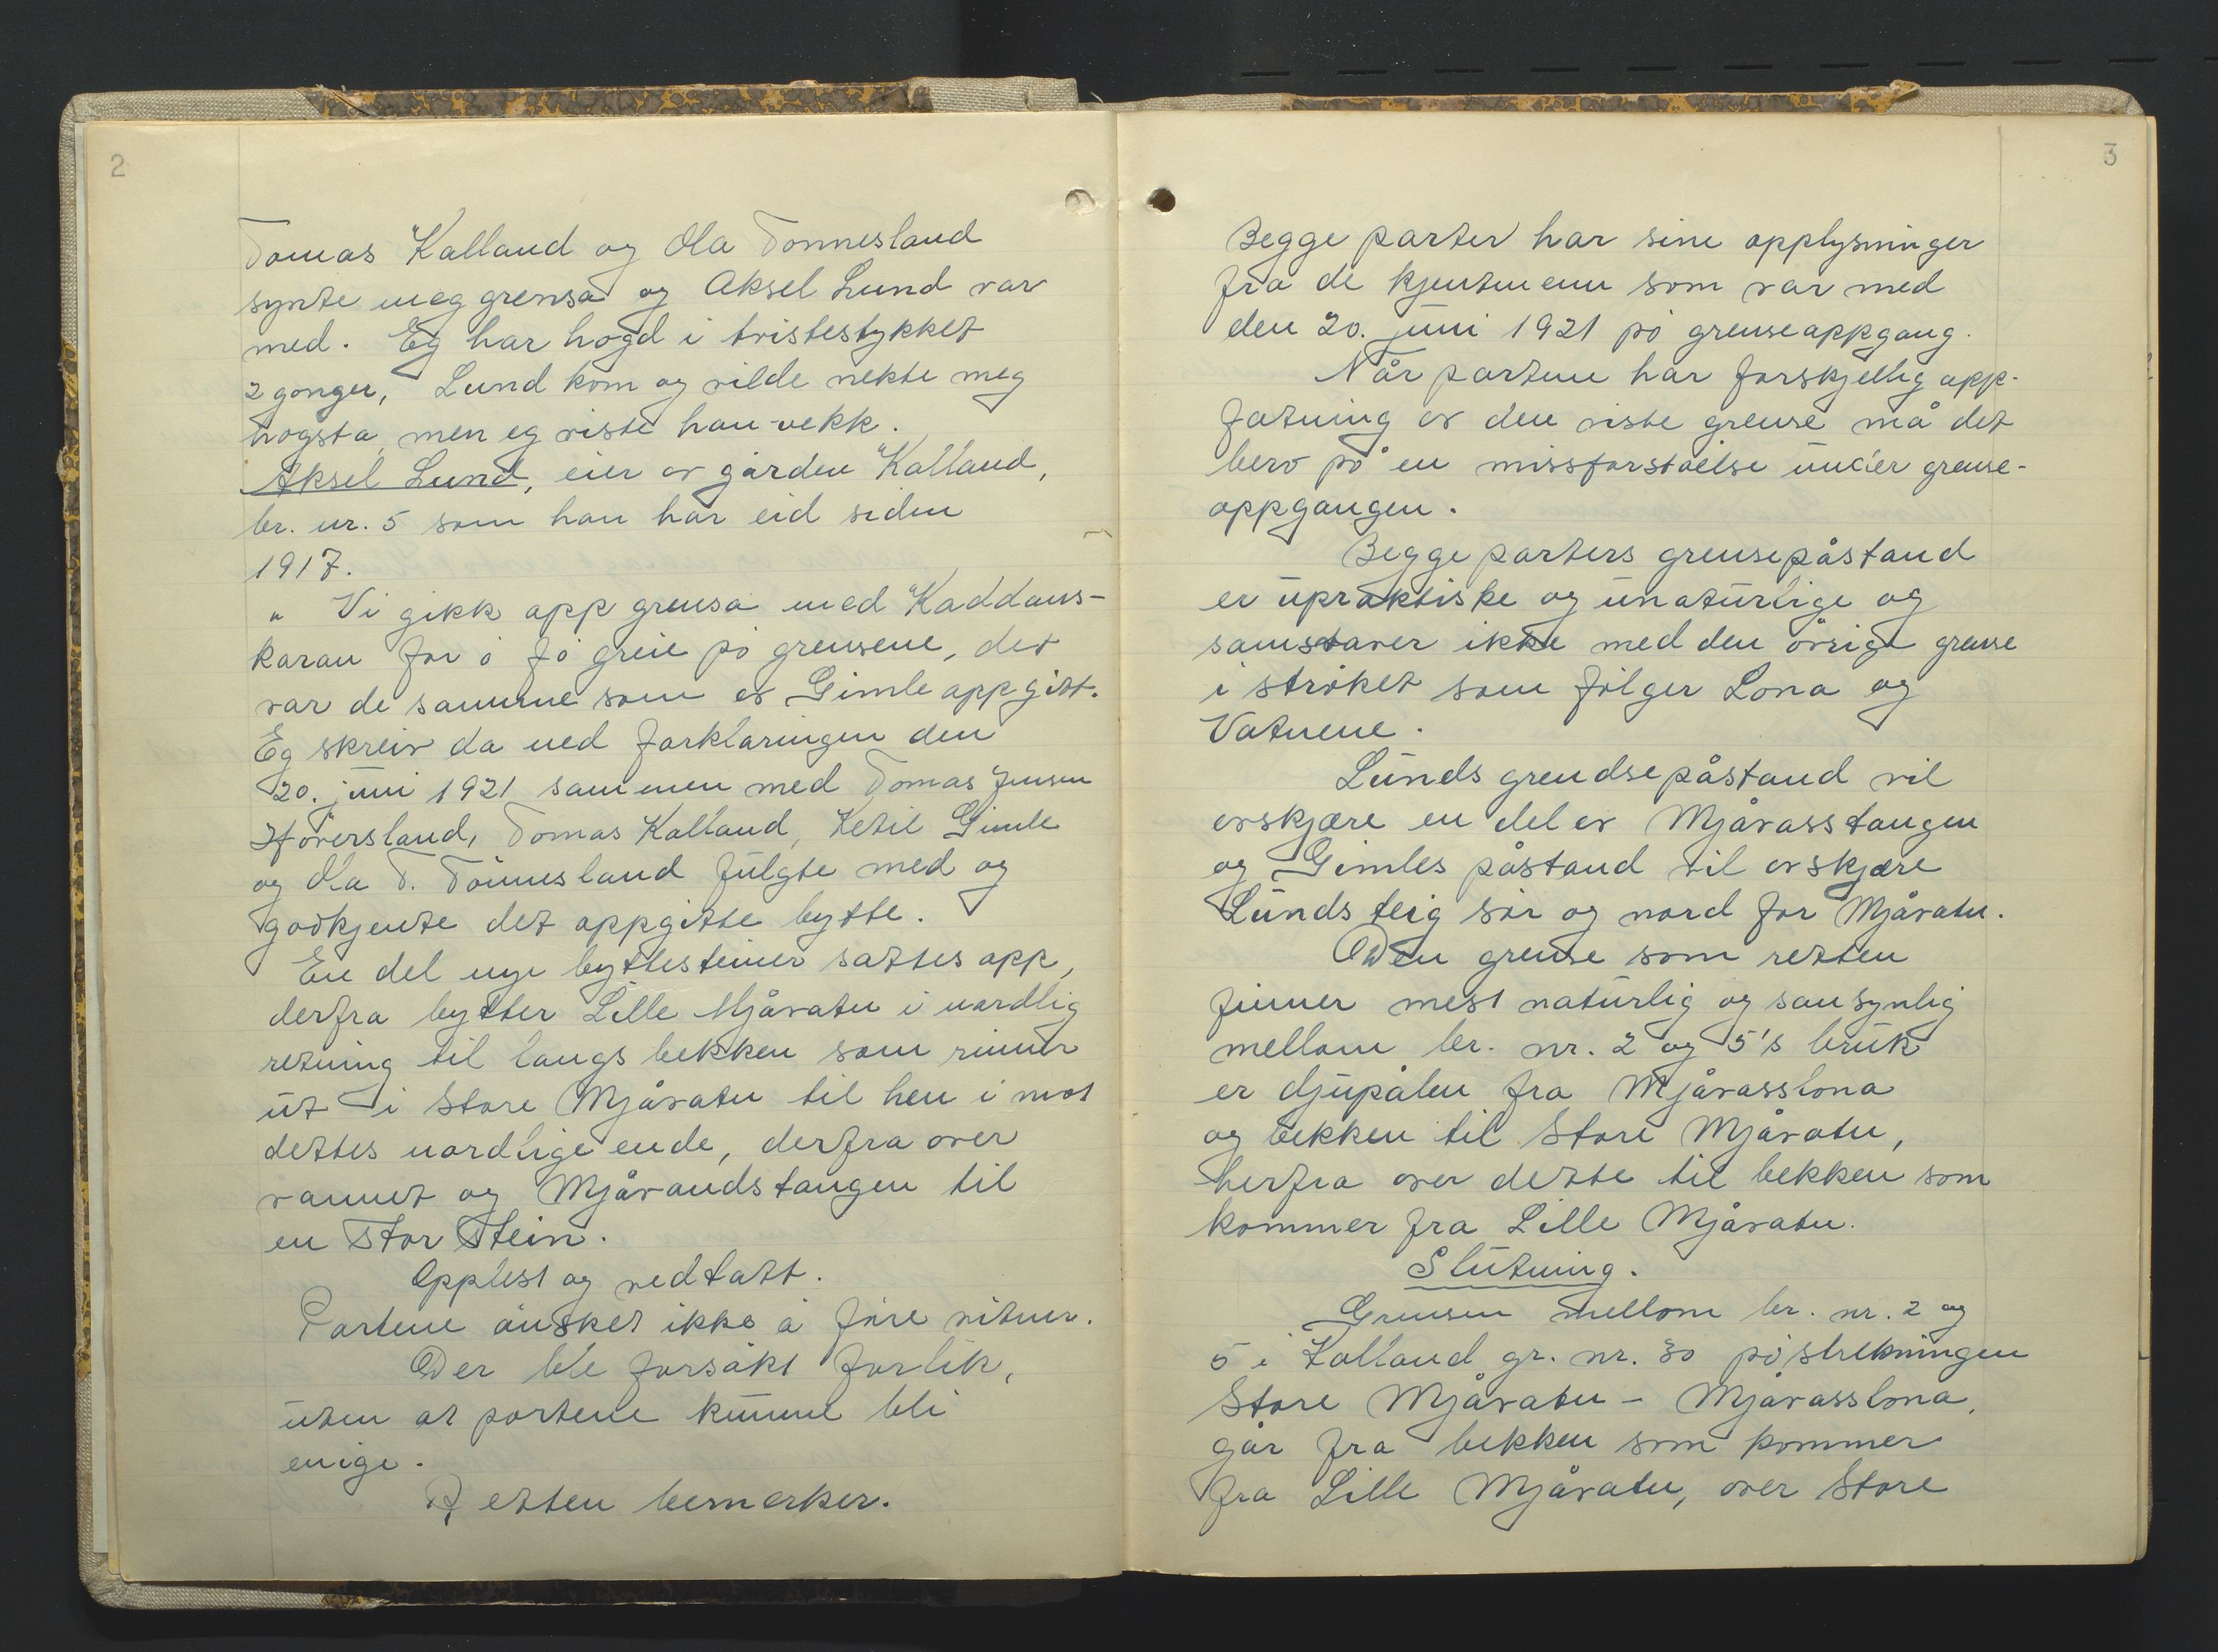 2
Tomas Kalland og Ola Tonnesland
synte meg grensa og Aksel Lund var
med. Eg har hogd i tvistestykket
2 gonger, Lund kom og vilde nekte meg
hogsta, men eg viste han vekk.
Aksel Lund, eier av gården Kalland,
br. nr. 5 som han har eid siden
1917.
" Vi gikk opp grensa med Kaddans-
karan for å få greie på grensene, det
var de samme som av Gimle oppgitt.
Eg skreiv da ned forklaringen den
20. juni 1921 sammen med Tomas Jensen
Høversland, Tomas Kalland, Ketil Gimle
og Ola T. Tønnesland fulgte med og
godkjente det oppgitte bytte.
En del nye byttesteiner sattes opp,
derfra bytter Lille Mjåvatn i nordlig
retning til langs bekken som rinner
ut i Store Mjåvatn til hen i mot
dettes nordlige ende, derfra over
vannet og Mjåvandstangen til
en stor stein.
Opplest og vedtatt.
Partene ønsket ikke å føre vitner.
Der ble forsøkt forlik,
uten at partene kunne bli
enige.
Retten bemerker.
3
Begge parter har sine opplysninger
fra de kjentmenn som var med
den 20. juni 1921 på grenseoppgang.
Når partene har forskjellig opp-
fatning av den viste grense må det
bero på en missforståelse under grense-
oppgangen.
Begge parters grensepåstand
er upraktiske og unaturlige og
samstaver ikke med den øvrige grense
i strøket som følger Lona og
Vatnene.
Lunds grendsepåstand vil
avskjære en del av Mjåvasstangen
og Gimles påstand vil avskjære
Lunds teig sør og nord for Mjåvatn.
Den grense som retten
finner mest naturlig og sansynlig
mellom br. nr. 2 og 5's bruk
er djupålen fra Mjåvasslona
og bekken til Store Mjåvatn,
herfra over dette til bekken som
kommer fra Lille Mjåvatn.
Slutning.
Grensen mellom br. nr. 2 og
5 i Kalland gr. nr. 30 på strekningen
Store Mjåvatn - Mjåvasslona,
går fra bekken som kommer
fra Lille Mjåvatn, over Store